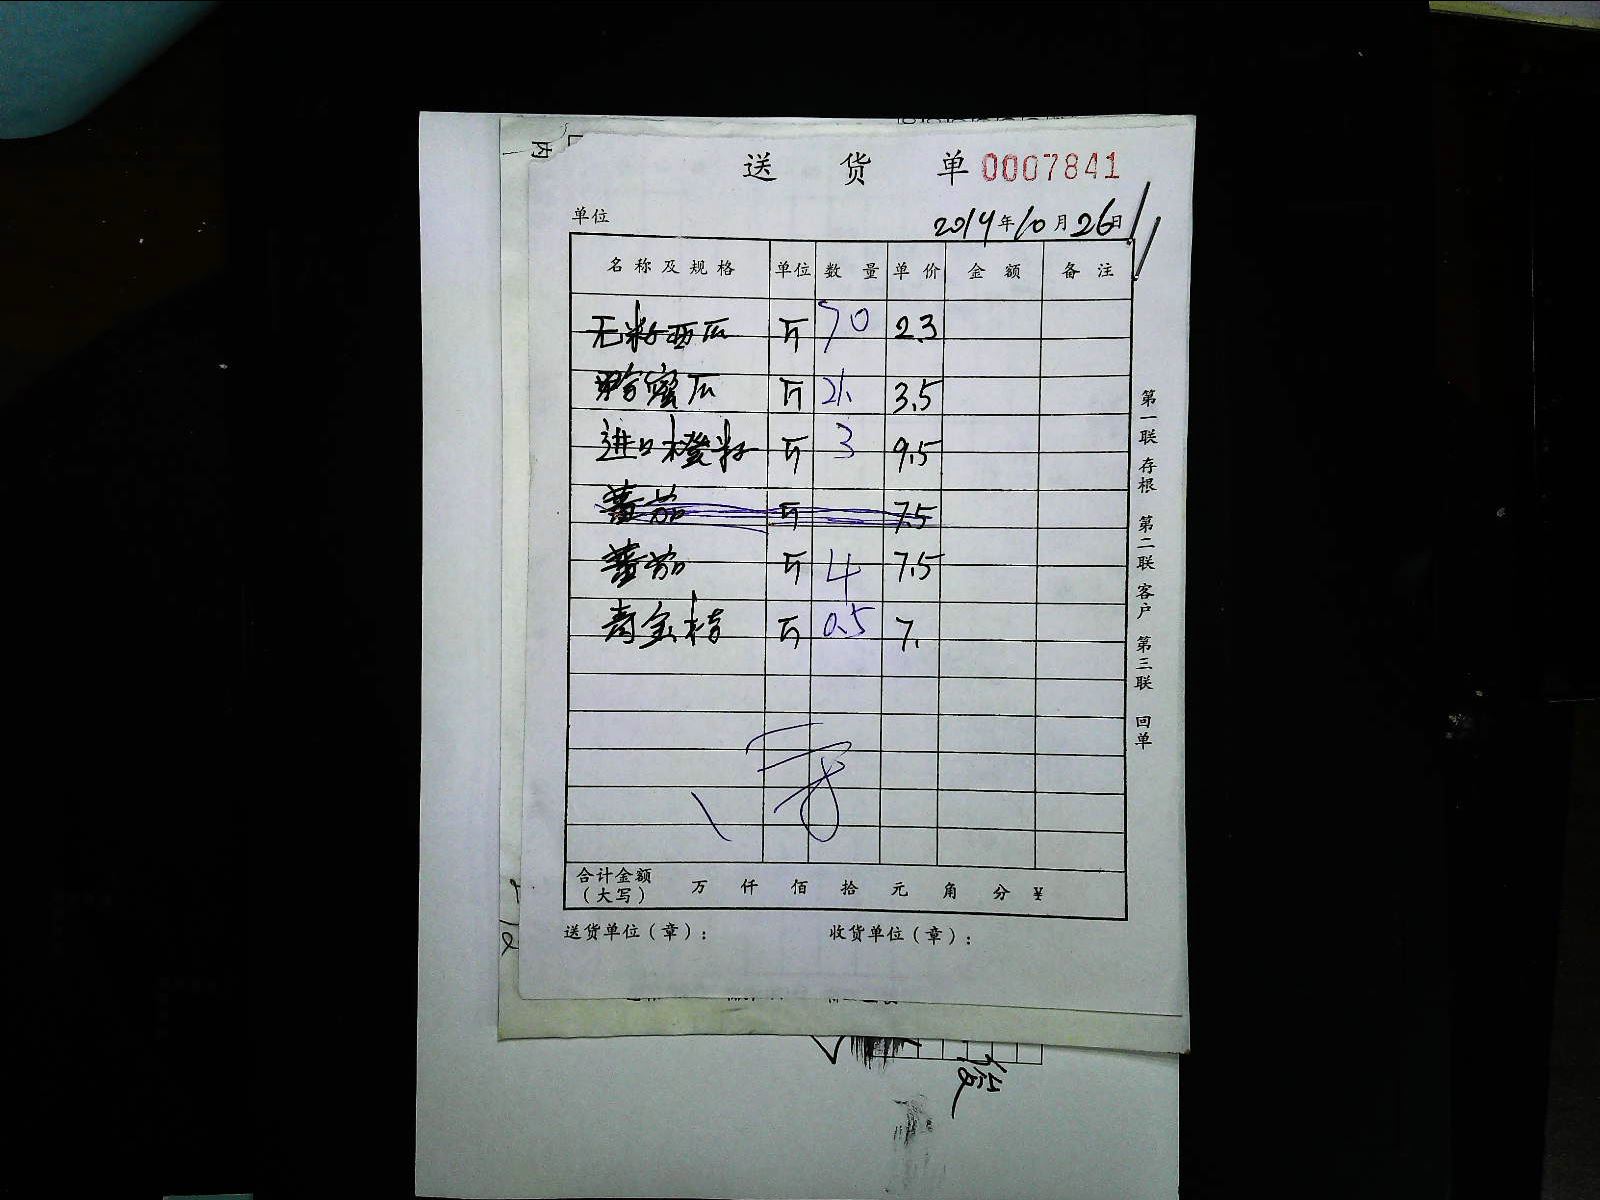 送货单 0007841
单位 2014年10月26日
名称及规格 单位 数量 单价 金额 备注
无籽西瓜 斤 70 2.3
哈密瓜 斤 21. 3.5
进口橙籽 斤 3 9.5
蕃茄 斤 7.5
蕃茄 斤 4 7.5
青金桔 斤 0.5 7.
合计金额
（大写） 万 仟 佰 拾 元 角 分 ¥
送货单位（章）： 收货单位（章）：
第一联 存根 第二联 客户 第三联 回单
内